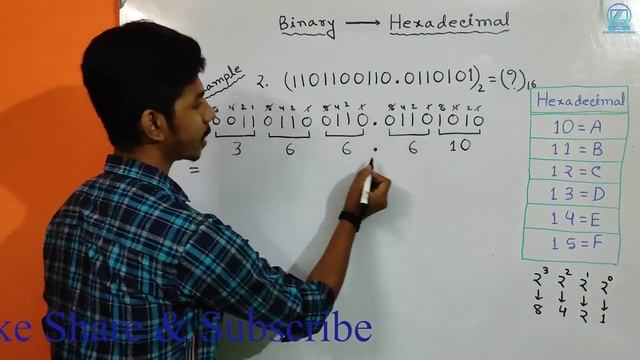 Binary → Hexadecimal
ample 2. (1101100110.0110101)₂ = (?)₁₆
0011 0110 0110 . 0110 1010
3 6 6 . 6 10
=
Hexadecimal
10 = A
11 = B
12 = C
13 = D
14 = E
15 = F
2³ 2² 2¹ 2⁰
↓ ↓ ↓ ↓
8 4 2 1
ke Share & Subscribe